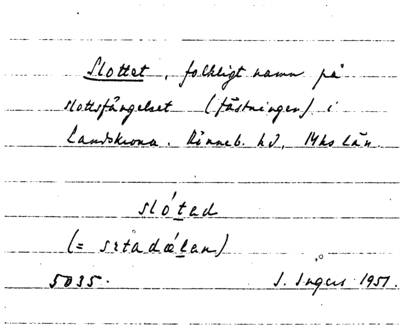 Slottet, folkligt namn på
slottsfängelset (fästningen) i
Landskrona. Rönneb. hd, Mhs län.
slótad
(= sitadǽlan)
5035. I. Ingers 1951.